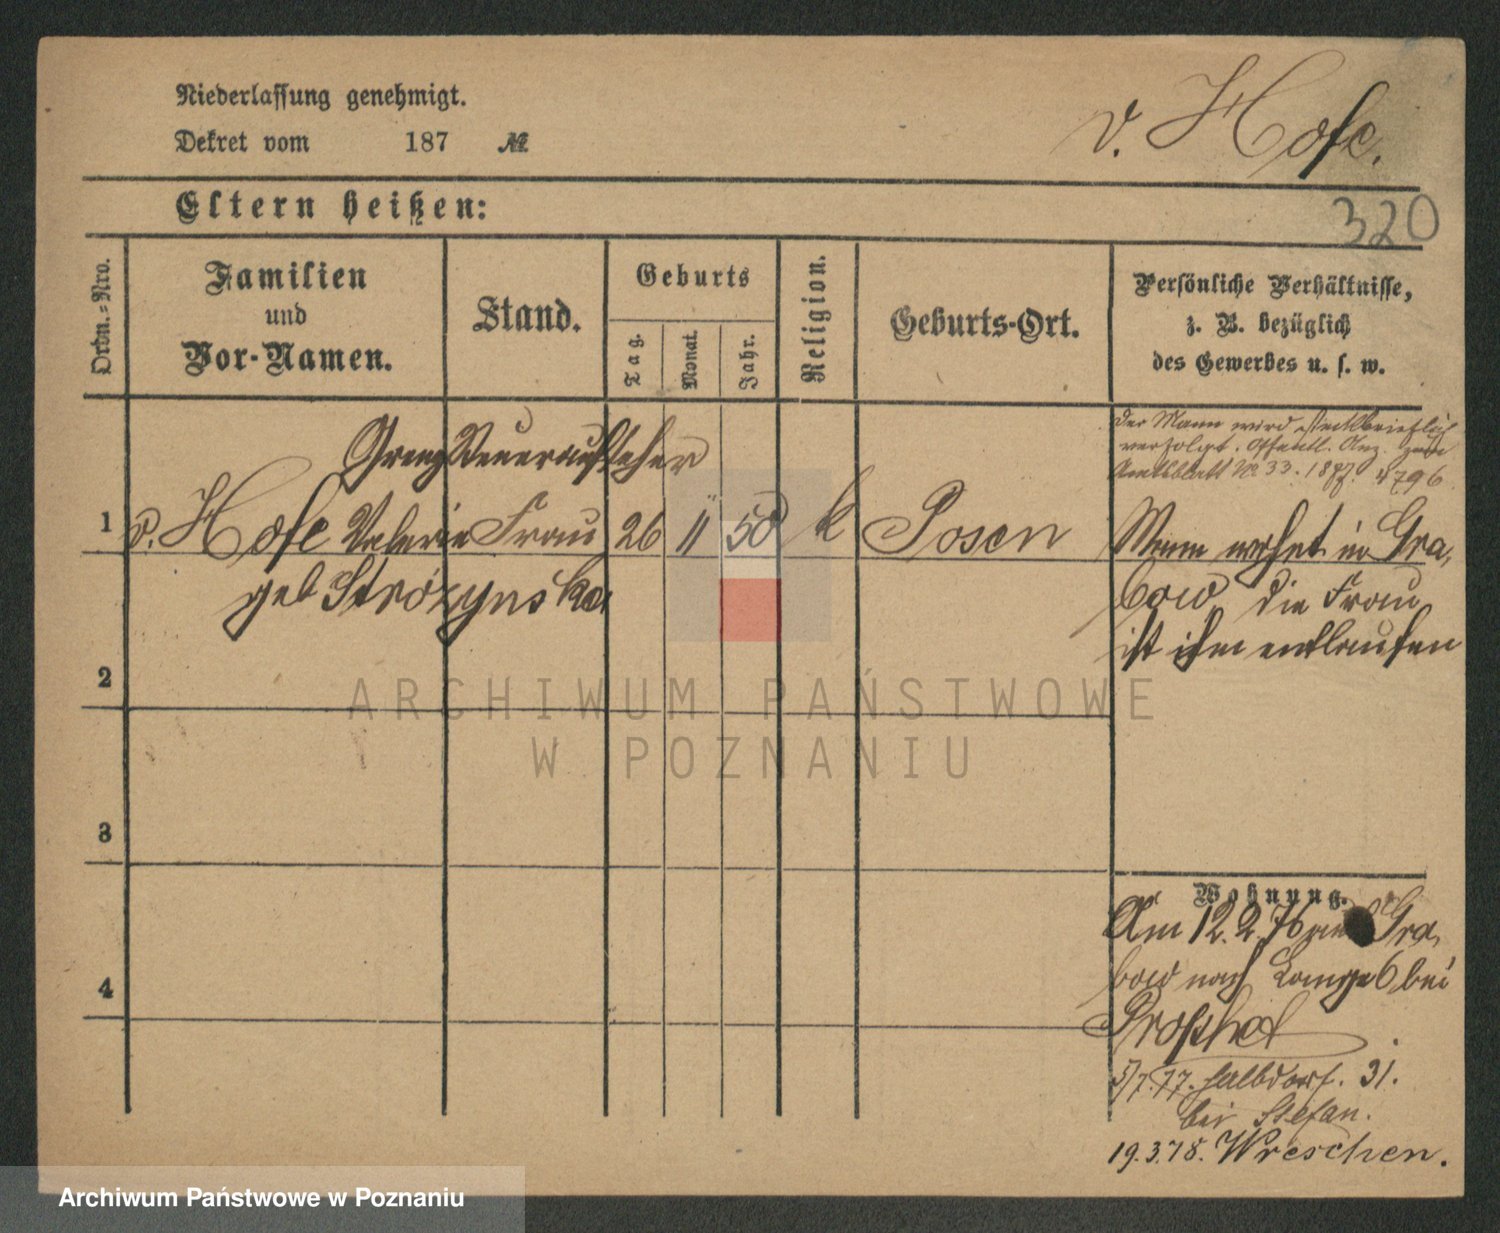 Niederlassung genehmigt.
v. Hofe.
Dekret vom 187 №
Eltern heißen:
320
Ordn.-Nro.
Familien
und
Vor-Namen.
Stand.
Geburts
Tag.
Monat.
Jahr.
Religion.
Geburts-Ort.
Persönliche Verhältnisse,
z. B. bezüglich
des Gewerbes u. s. w.
der Mann wird steckbrieflich
verfolgt. Öffentl. Anz. zum
Amtsblatt No 33. 1877. 4796
Grenzsteueraufseher
1 v. Hofe Valerie Frau 26 11 50 k Posen
geb Strózynska
Mann wohnt in Gra,
bow, die Frau
ist ihm entlaufen
2
3
4
Wohnung.
Am 12.2.76 aus Gra,
bow nach Lange 6 bei
5/7.77. Halbdorf. 31.
bei Stefan.
19.3.78. Wreschen.
ARCHIWUM PAŃSTWOWE
W POZNANIU
Archiwum Państwowe w Poznaniu